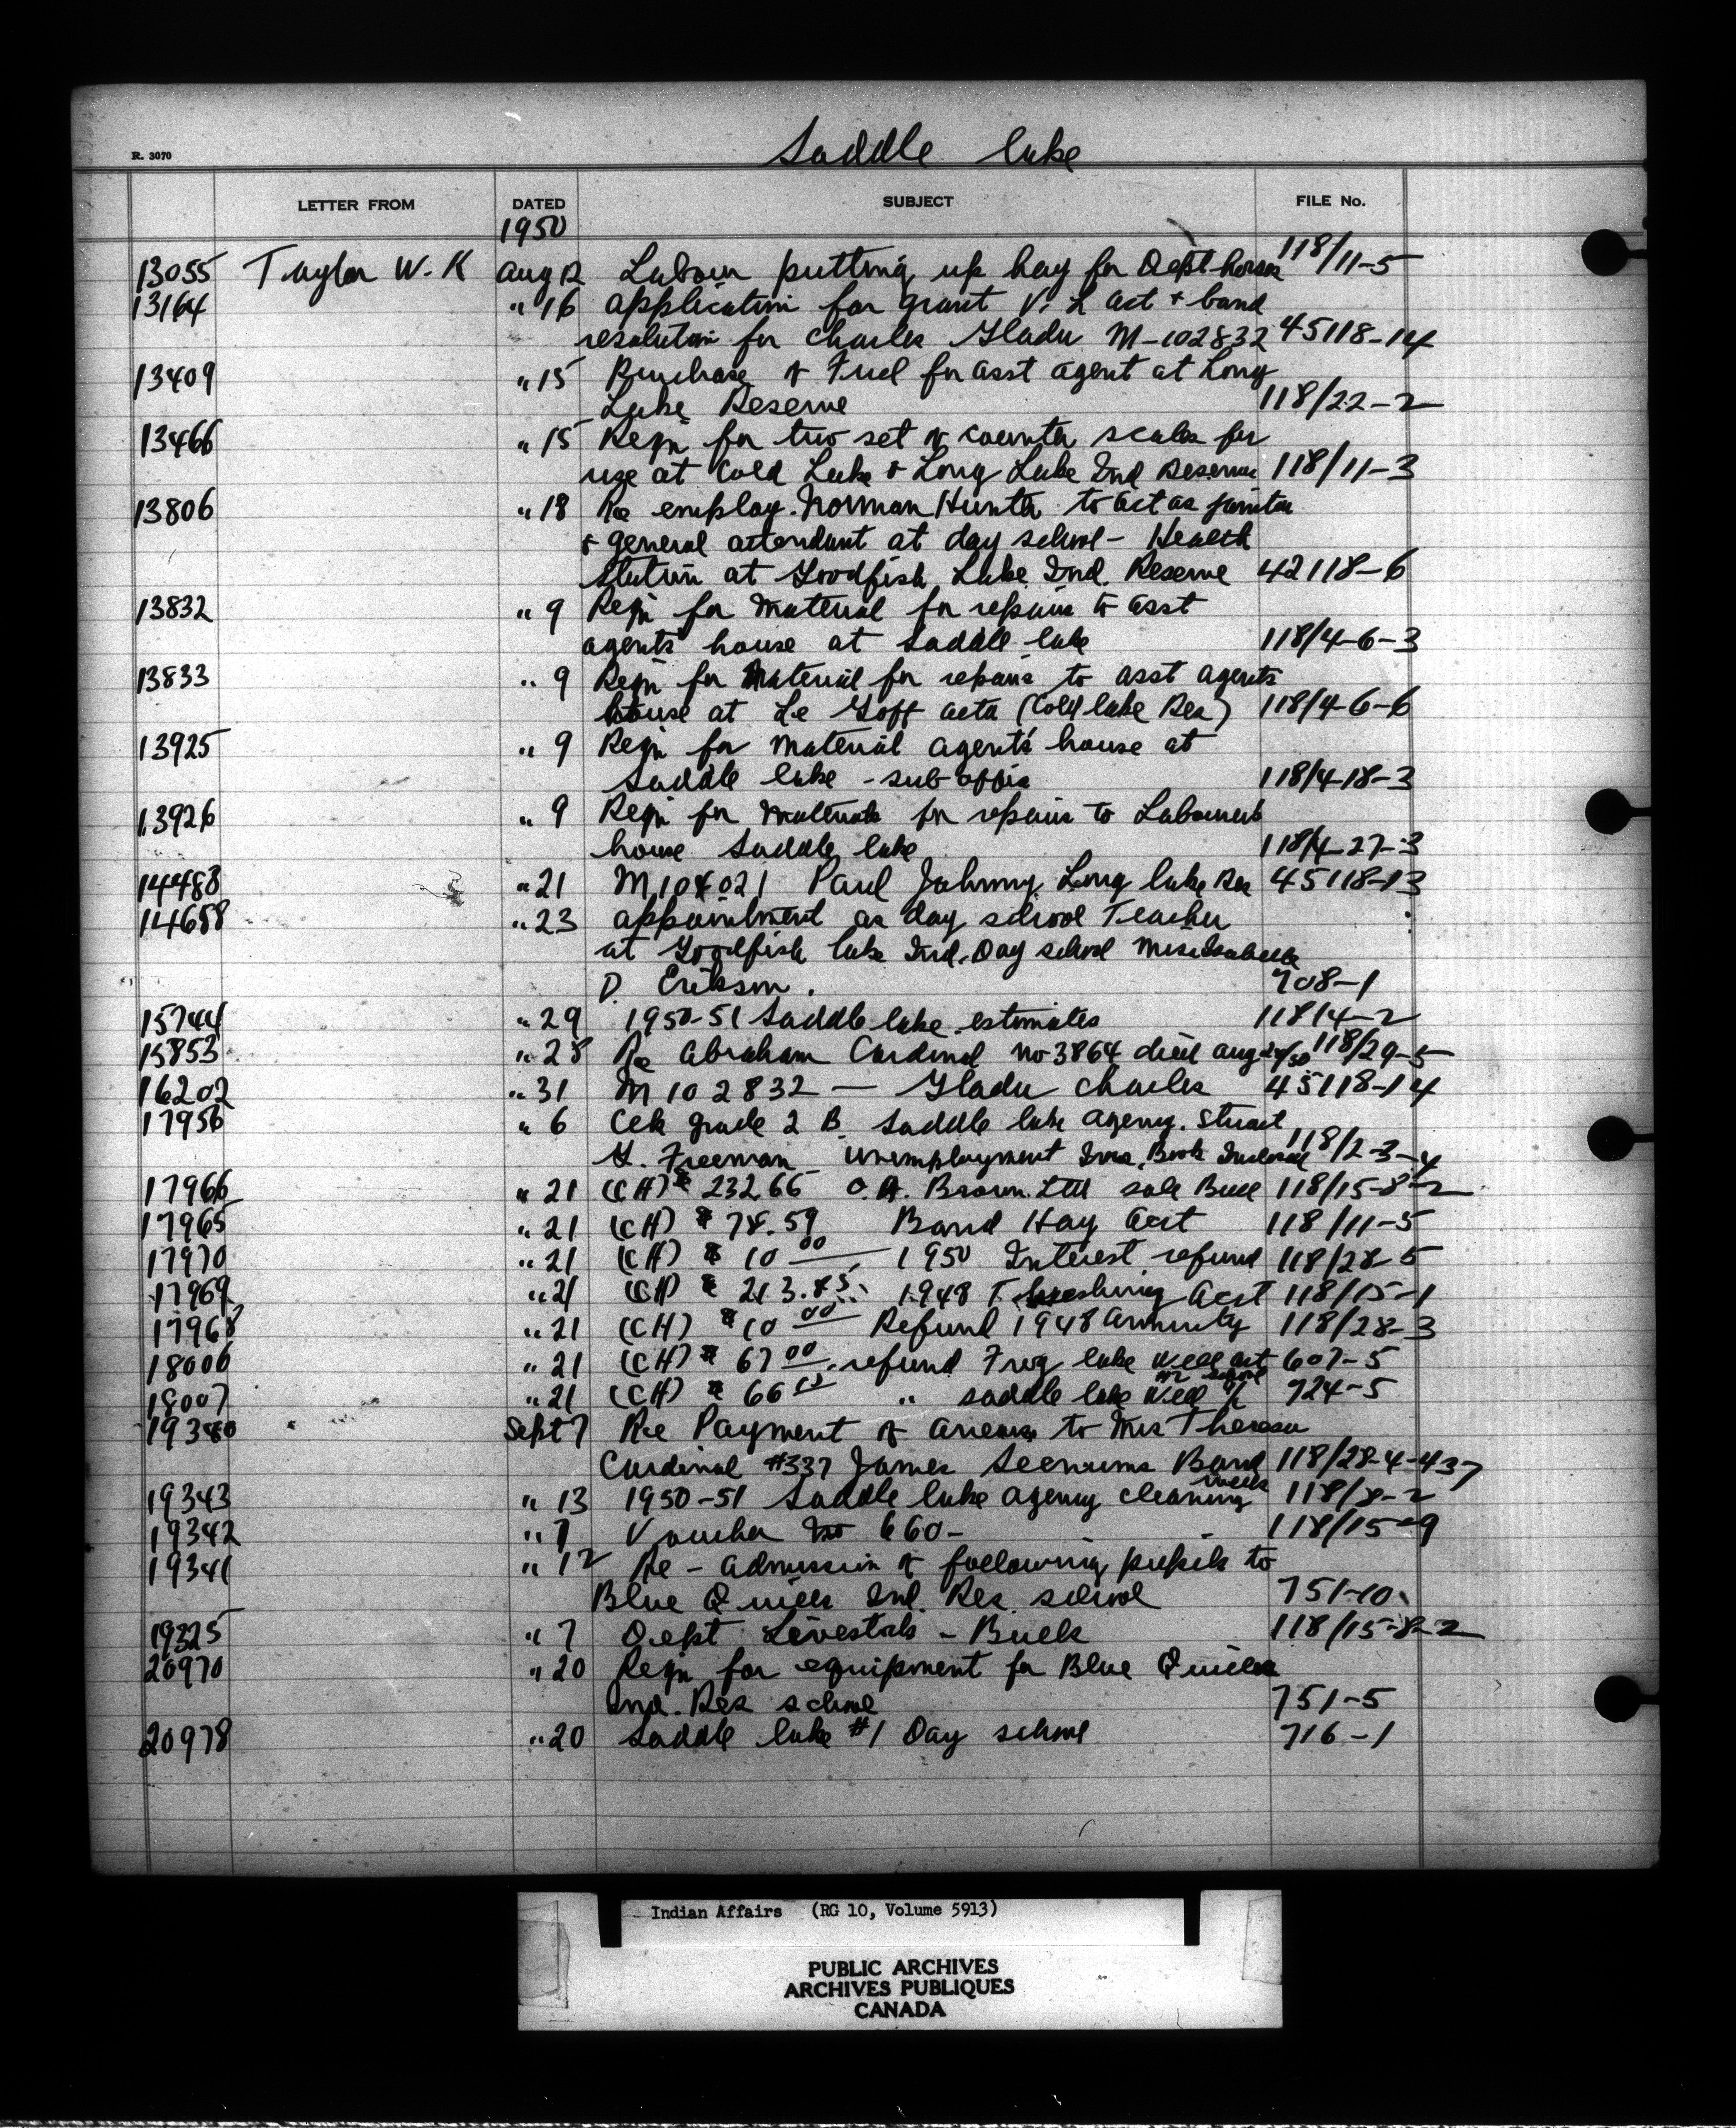 Saddle Lake
R. 3070
LETTER FROM DATED SUBJECT FILE No.
1950
13055 Taylor W. K Aug 12 Labour putting up hay for Dept horses 118/11-5
13164 " 16 Application for grant V. L Act + band
resolution for Charles Gladu M-102832 45118-14
13409 " 15 Purchase of Fuel for asst agent at Long
Lake Reserve 118/22-2
13466 " 15 Reqn for two set of counter scales for
use at Cold Lake & Long Lake Ind Reserves 118/11-3
13806 " 18 Re employ. Norman Hunter to act as janitor
& general attendant at day school - Health
Station at Goodfish Lake Ind. Reserve 42118-6
13832 " 9 Reqn for Material for repairs to asst
agents' house at Saddle Lake 118/4-6-3
13833 " 9 Reqn for Material for repairs to asst agents
house at Le Goff Alta (Cold Lake Res) 118/4-6-6
13925 " 9 Reqn for Material agent's house at
Saddle Lake - sub office 118/4-18-3
13926 " 9 Reqn for Materials for repairs to Labourers
house Saddle Lake 118/4-27-3
14483 " 21 M 104021 Paul Johnny Long Lake Res 45118-13
14658 " 23 Appointment as day school Teacher
at Goodfish Lake Ind. Day school Miss Isabelle
D. Erikson. 708-1
15744 " 29 1950-51 Saddle Lake estimates 118/4-2
15853 " 28 Re Abraham Cardinal no 3864 died Aug 118/29-5
16202 " 31 M 102832 — Gladu Charles 45118-14
17956 " 6 Clk grade 2 B. Saddle Lake Agency. Stuart
G. Freeman - Unemployment Ins. Book Enclosed 118/2-3-4
17966 " 21 (CH) $ 232.66 O.H. Brown Ltd sale Bull 118/15-8-2
17965 " 21 (CH) $ 78.59 Band Hay Acct 118/11-5
17970 " 21 (CH) $ 10 00 — 1950 Interest refund 118/28-5
17969 " 21 (CH) $ 213.85 1948 Threshing Acct 118/15-1
17968 " 21 (CH) $ 10 00 Refund 1948 Annuity 118/28-3
18006 " 21 (CH) $ 67 00. refund Frog Lake Well Act 607-5
18007 " 21 (CH) $ 66 " Saddle Lake Well 724-5
19340 Sept 7 Re Payment of arrears to Mrs Theresa
Cardinal #337 James Seenums Band 118/28-4-437
19343 " 13 1950-51 Saddle Lake Agency cleaning wells 118/8-2
19342 " 7 Voucher No 660 - 118/15-9
19341 " 12 Re - Admission of following pupils to
Blue Quills Ind. Res. school 751-10
19325 " 7 Dept Livestock - Bulls 118/15-8-2
20970 " 20 Reqn for equipment for Blue Quills
Ind. Res school 751-5
20978 " 20 Saddle Lake #1 Day school 716-1
Indian Affairs (RG 10, Volume 5913)
PUBLIC ARCHIVES
ARCHIVES PUBLIQUES
CANADA